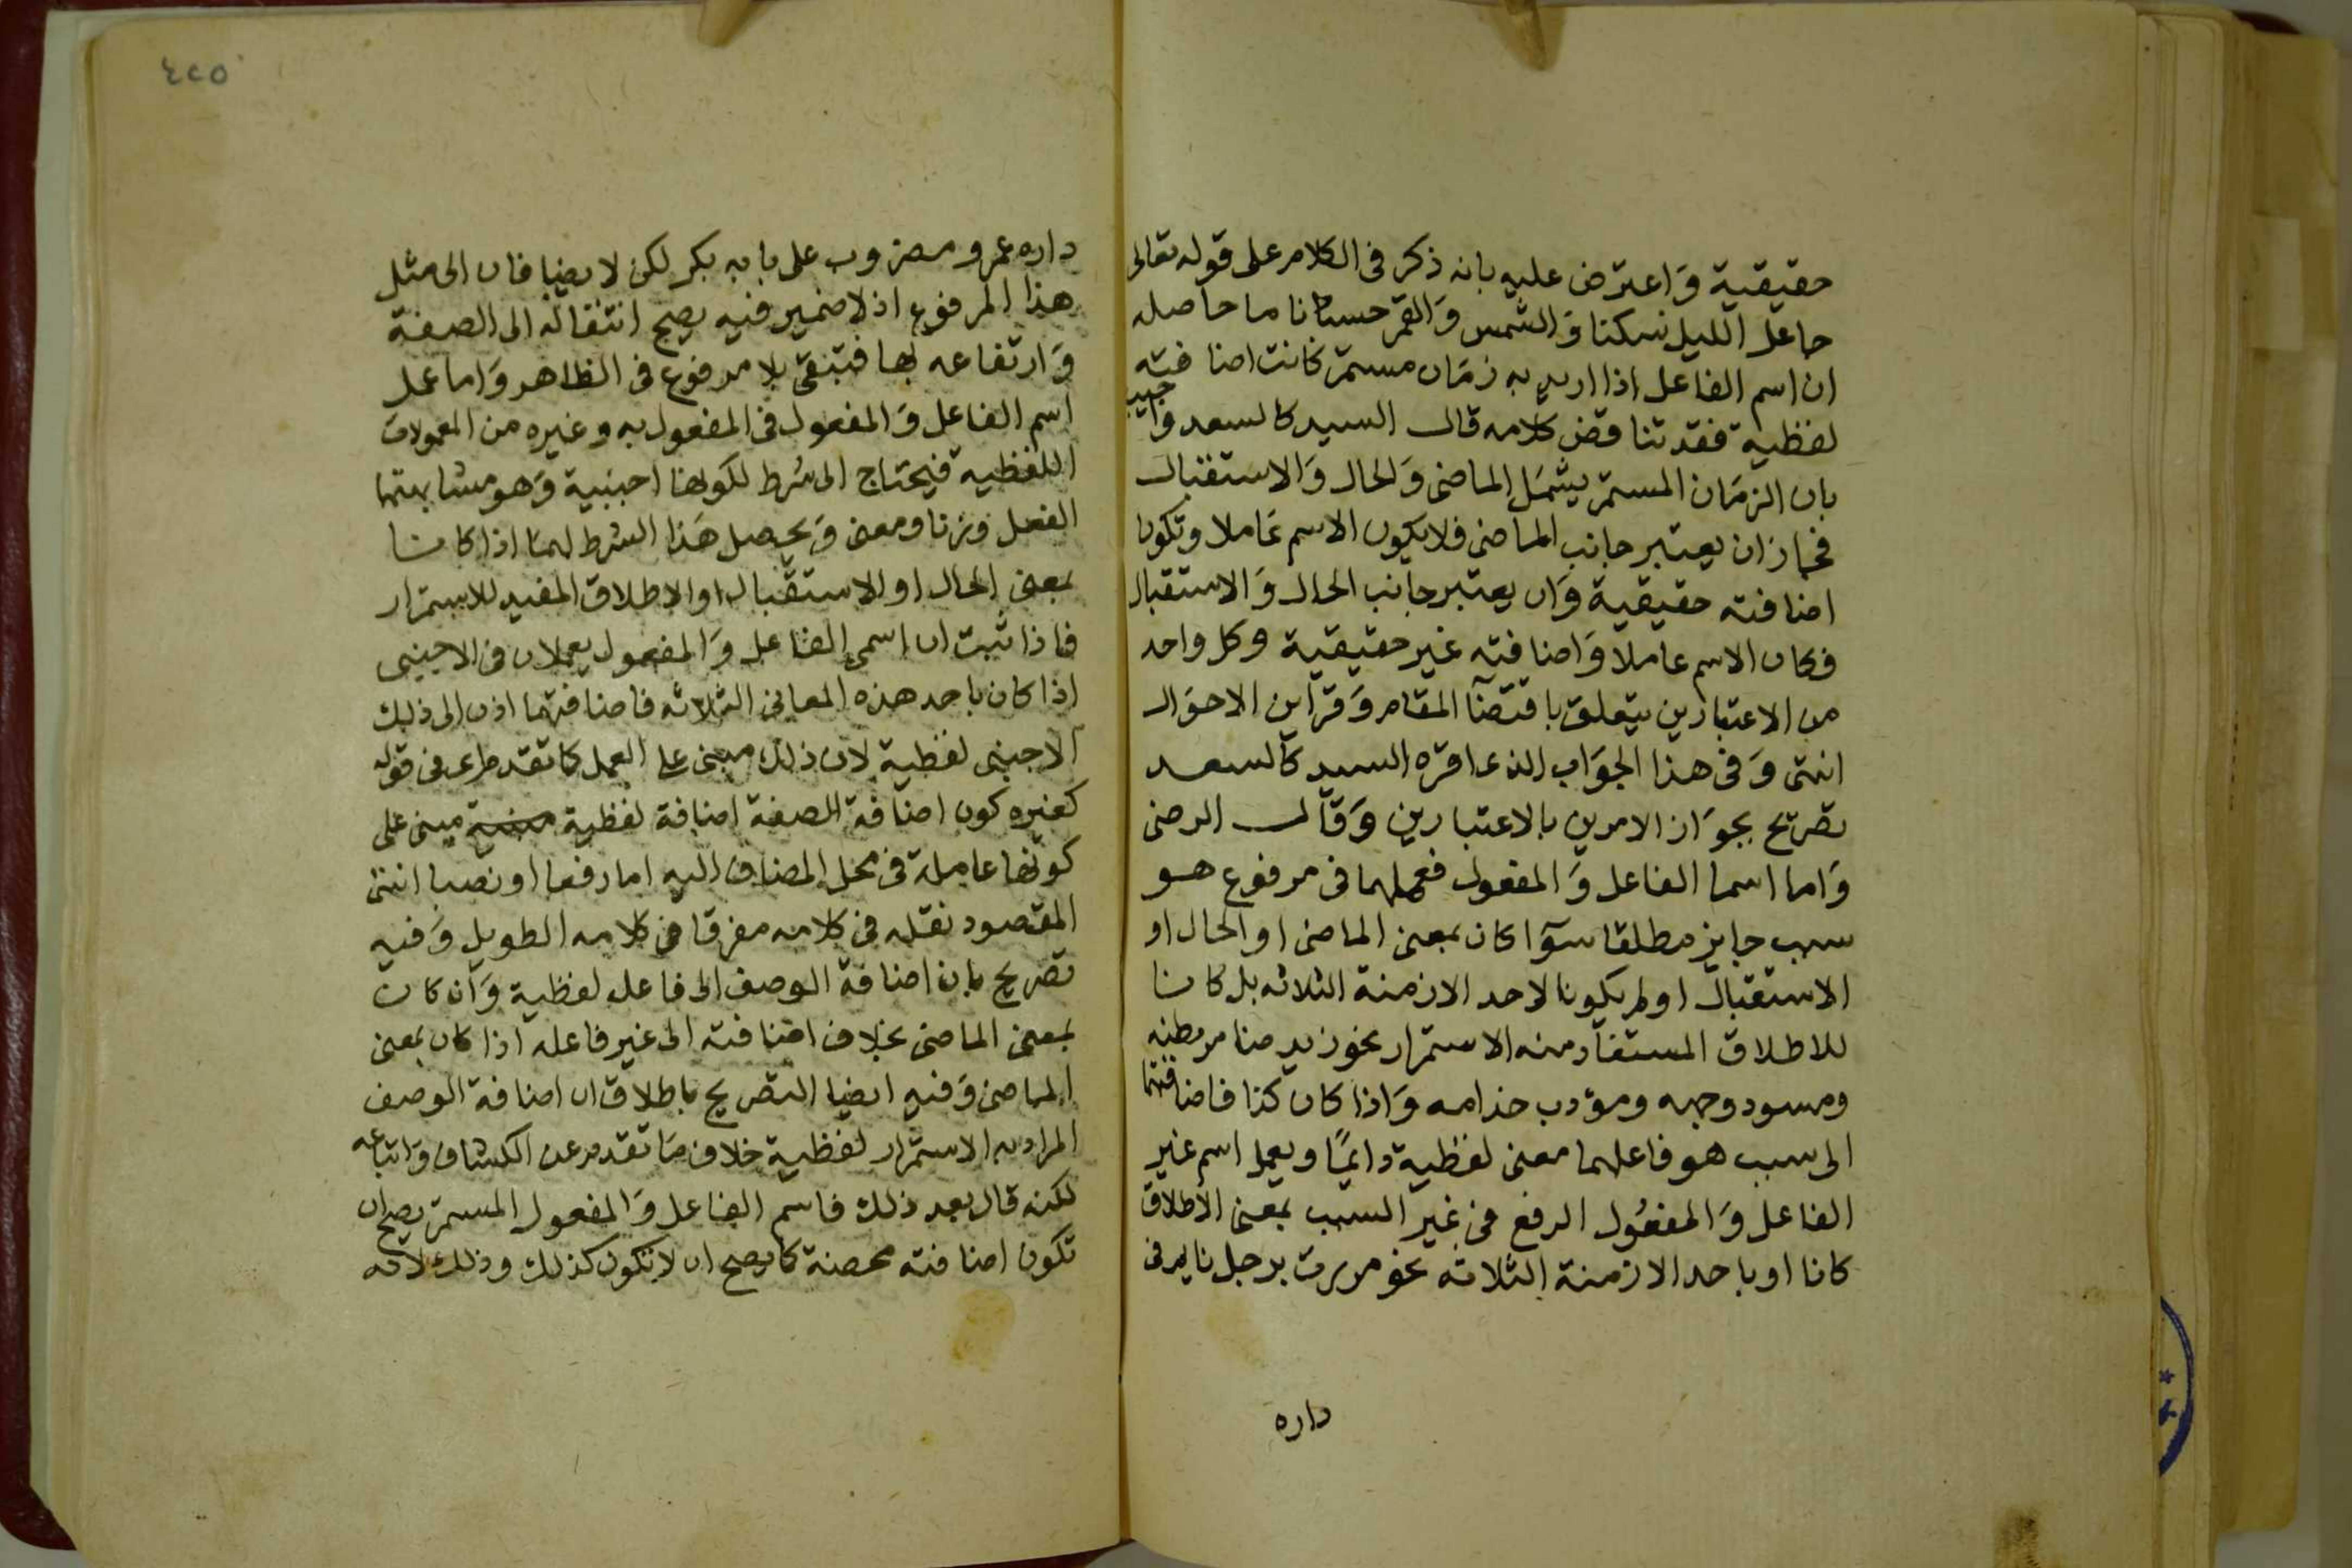 حقيقية وَاعترض عليه بانه ذكر فى الكلام على قوله تعالى
جاعل الليل سكنا وَالشمس وَالقمر حسبانا ما حاصله
ان اسم الفاعل اذا اريد به زمَان مستمر كانت اضافته
لفظية فقد تناقض كلامه قال السيد كالسعد وَاجيب
بان الزمَان المستمر يشمَل الماضى وَالحال وَالاستقبال
فجاز ان يعتبر جانب الماضى فلا يكون الاسم عَاملا وتكون
اضافته حقيقية وَان يعتبر جانب الحال وَالاستقبال
فكان الاسم عاملا وَاضافته غير حقيقية وكل واحد
من الاعتبارين يتعلق باقتضآ المقام وَقراين الاحوَال
انتهى وَفى هذا الجوَاب الذى اقره السيد كالسعد
تصريح بجوَاز الامرين بالاعتبارين وَقال الرضى
وَاما اسما الفاعل وَالمفعول فعملهما فى مرفوع هو
سبب جايز مطلقا سوآ كان بمعنى الماضى او الحال او
الاستقبال او لم يكونا لاحد الازمنة الثلاثه بل كانا
للاطلاق المستفاد منه الاستمرار نحو زيد ضامر بطنه
ومسود وجهه ومؤدب خدامه وَاذا كان كذا فاضافتهما
الى سبب هو فاعلهما معنى لفظية دائمًا ويعمل اسم غير
الفاعل وَالمفعُول الرفع فى غير السبب بمعنى الاطلاق
كانا او باحد الازمنة الثلاثه نحو مررت برجل نايم فى
داره
٤٢٥
داره عمرو ومضروب على بابه بكر لكن لا يضافان الى مثل
هذا المرفوع اذ لا ضمير فيه يصح انتقاله الى الصفة
وَارتفاعه بها فتبقى بلا مرفوع فى الظاهر وَاما عمل
اسم الفاعل وَالمفعول فى المفعول به وغيره من المعمولات
اللفظيه فيحتاج الى شرط لكونها اجنبية وَهو مشابهتهما
الفعل وزنا ومعنى وَيحصل هَذا الشرط لهما اذا كانا
بمعنى الحال او الاستقبال او الاطلاق المفيد للاستمرار
فاذا ثبت ان اسمى الفاعل وَالمفعول يعملان فى الاجنبى
اذا كان باحد هذه المعانى الثلاثه فاضافتهما اذن الى ذلك
الاجنبى لفظية لان ذلك مبنى على العمل كما تقدم اى فى قوله
كغيره كون اضافة الصفة اضافة لفظية مبنى على
كونها عاملة فى محل المضاف اليه اما رفعا او نصبا انتهى
المقصود نقله فى كلامه مفرقا فى كلامه الطويل وَفيه
تصريح بان اضافة الوصف الى فاعله لفظية وَان كان
بمعنى الماضى بخلاف اضافته الى غير فاعله اذا كان بمعنى
الماضى وَفيه ايضا التصريح باطلاق ان اضافة الوصف
المراد به الاستمرار لفظية خلاف مَا تقدم عن الكشاف وَاتباعه
لكنه قال بعد ذلك فاسم الفاعل وَالمفعول المستمر يصح ان
تكون اضافته محضة كما يصح ان لا تكون كذلك وذلك لانه